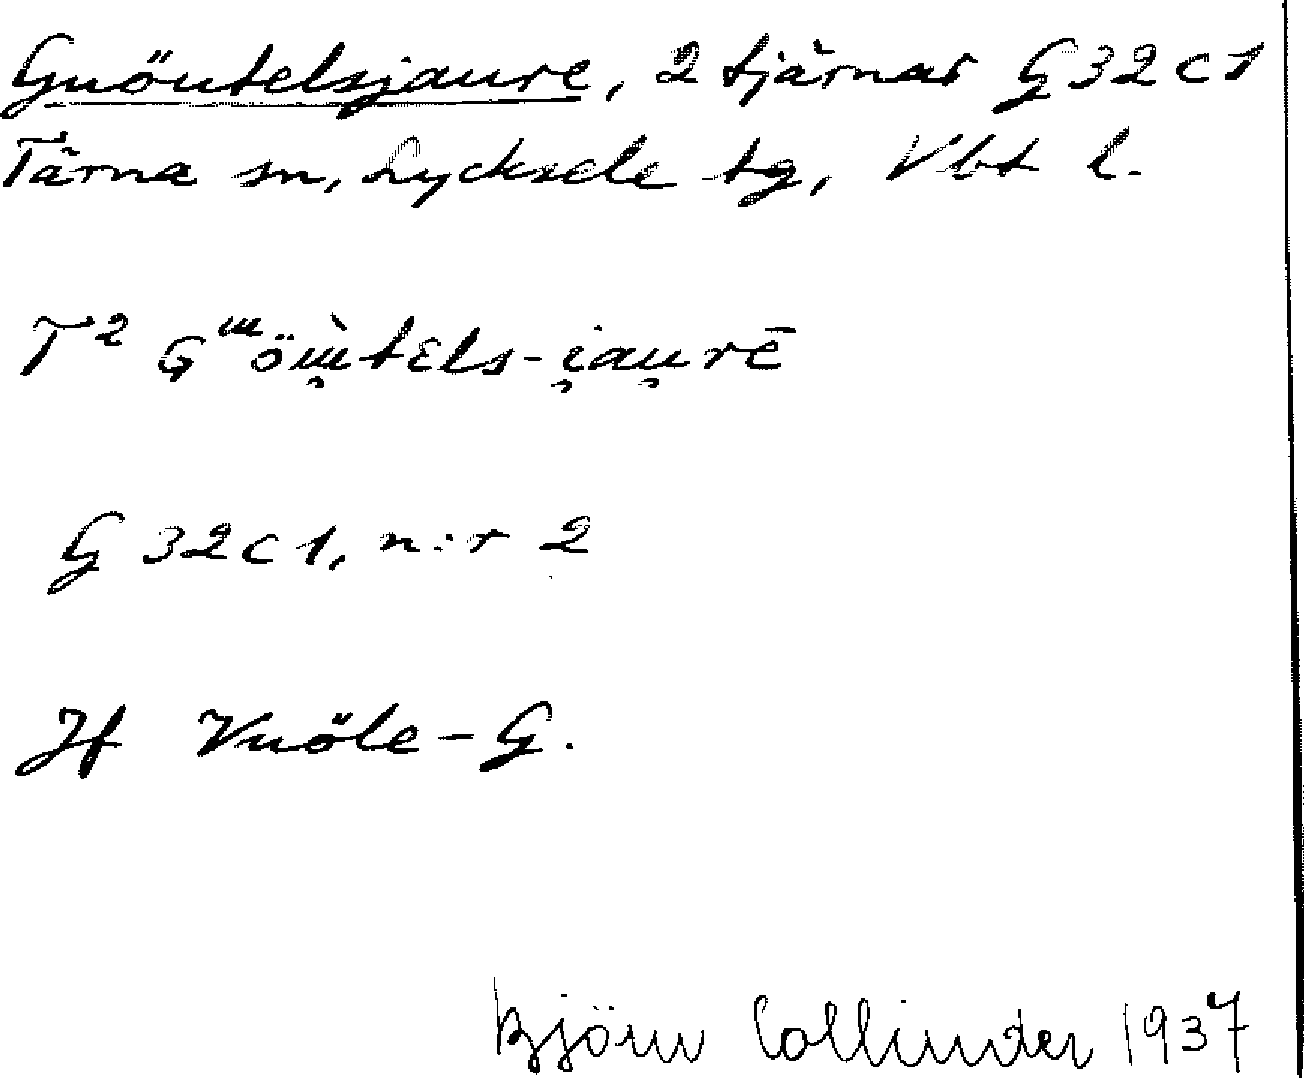 Guöutelsjaure, 2 tjärnar G 32 c 1
Tärna sn, Lycksele tg, Vbt l.
T² Gᵚöɯ̯̀tεls-i̯au̯rē
G 32 c 1, n:r 2
Jf Vuöle-G.
Björn Collinder 1937